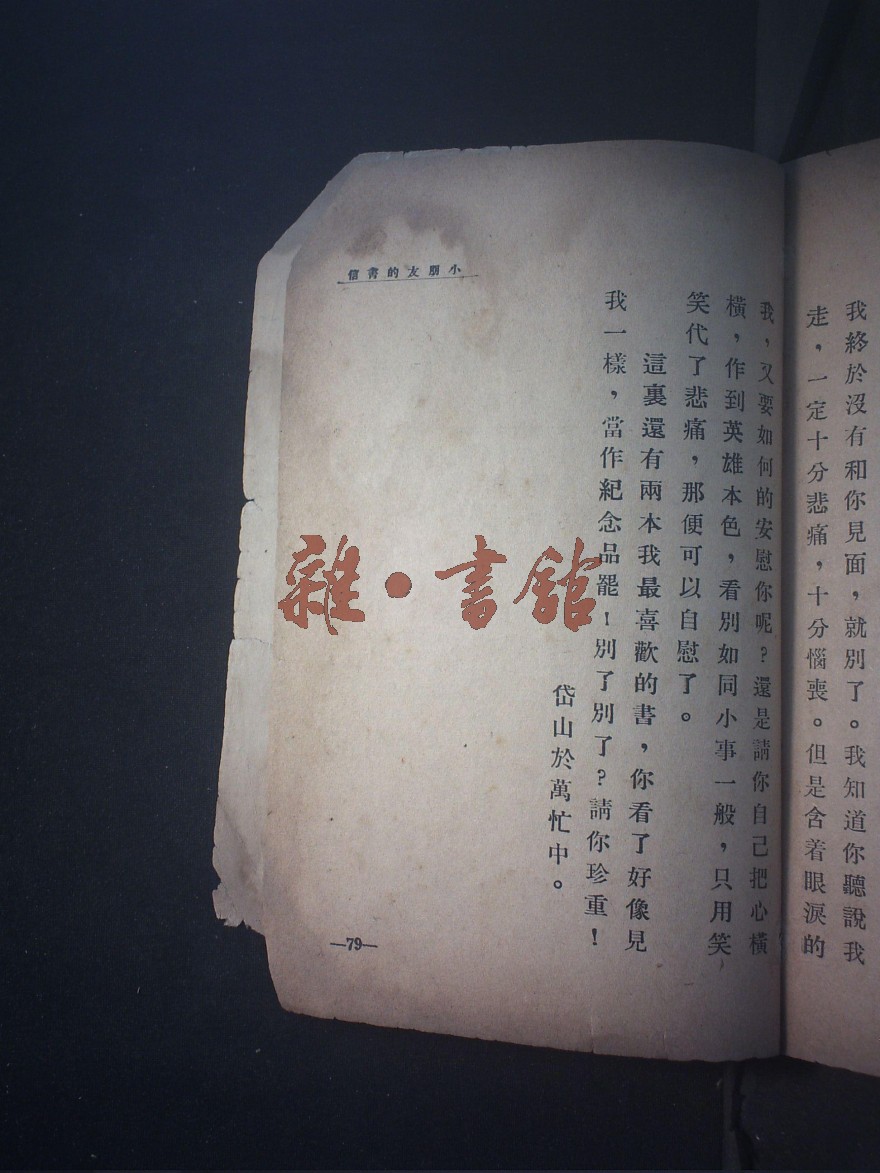 我終於沒有和你見面，就別了。我知道你聽說我
走，一定十分悲痛，十分惱喪。但是含着眼淚的
我，又要如何的安慰你呢？還是請你自己把心橫
橫，作到英雄本色，看別如同小事一般，只用笑
笑代了悲痛，那便可以自慰了。
這裏還有兩本我最喜歡的書，你看了好像見
我一樣，當作紀念品罷！別了別了？請你珍重！
岱山於萬忙中。
小朋友的書信
—79—
雜•書館